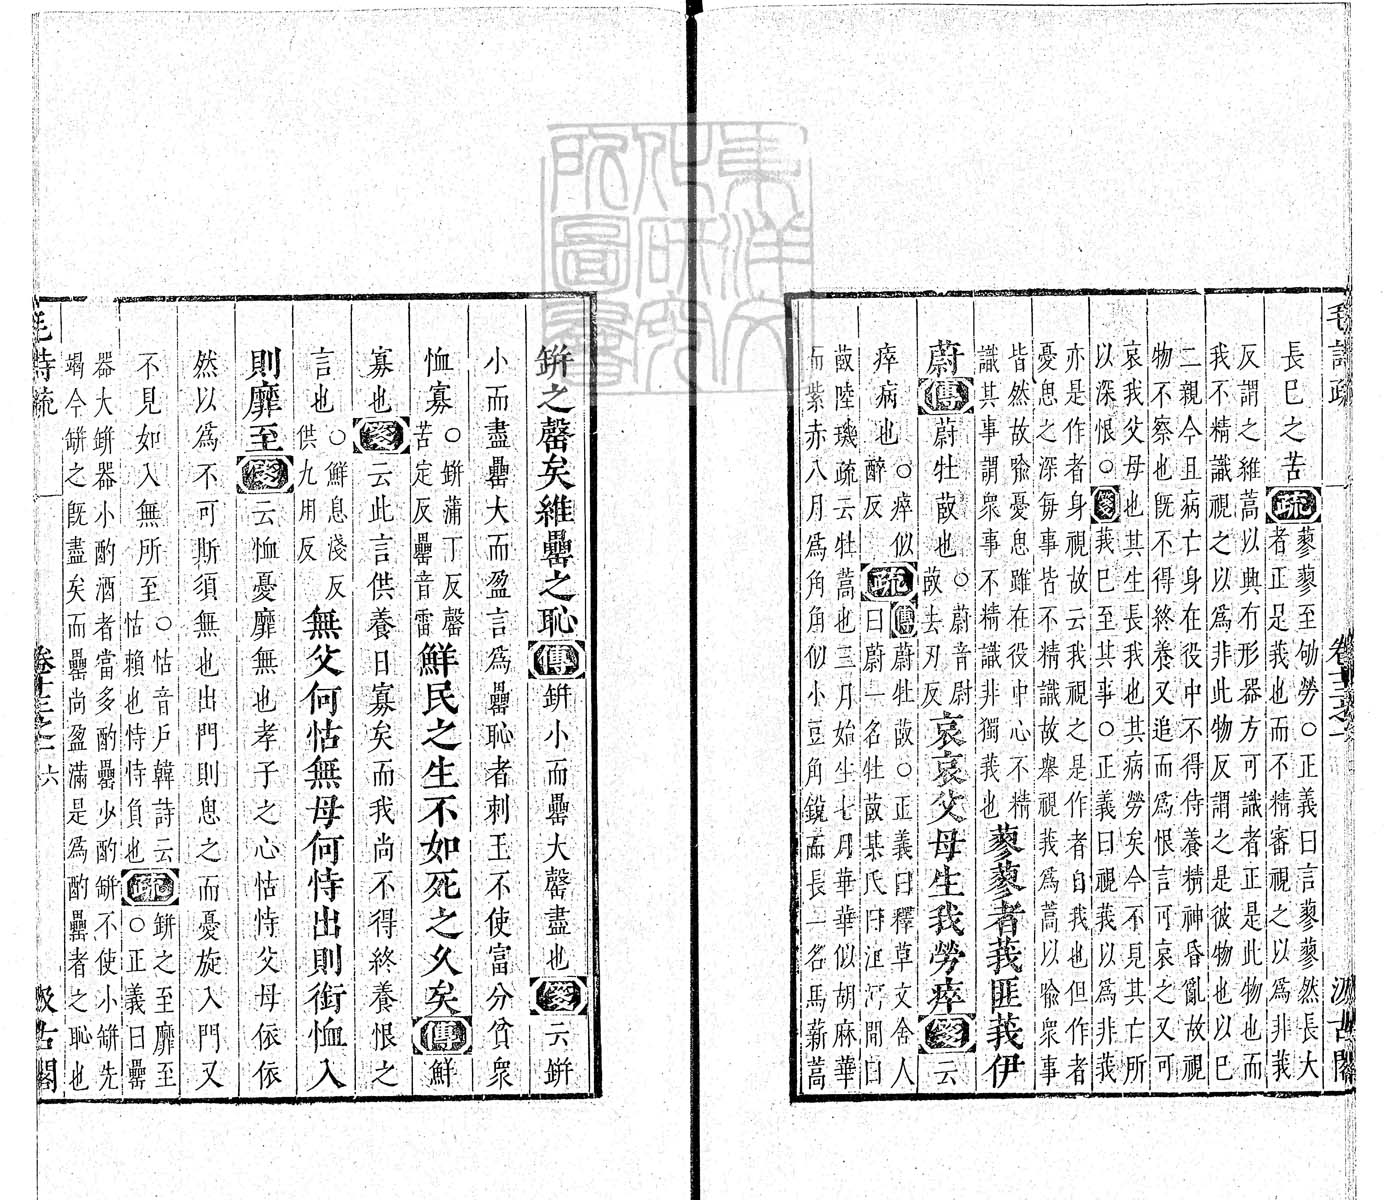 毛詩疏
卷十三之一
汲古閣
長已之苦疏蓼蓼至劬勞○正義曰言蓼蓼然長大
者正是莪也而不精審視之以為非莪
反謂之維蒿以興有形器方可識者正是此物也而
我不精識視之以為非此物反謂之是彼物也以已
二親今且病亡身在役中不得侍養精神昏亂故視
物不察也旣不得終養又追而為恨言可哀之又可
哀我父母也其生長我也其病勞矣今不見其亡所
以深恨○箋莪已至其事○正義曰視莪以為非莪
亦是作者身視故云我視之是作者自我也但作者
憂思之深每事皆不精識故舉視莪為蒿以喻衆事
皆然故喻憂思雖在役中心不精
識其事謂衆事不精識非獨莪也
蓼蓼者莪匪莪伊
蔚傳蔚牡菣也○蔚音尉
菣去刃反
哀哀父母生我勞瘁箋云
瘁病也○瘁似
醉反
疏傳蔚牡菣○正義曰釋草文舍人
曰蔚一名牡菣某氏曰江河間曰
菣陸璣疏云牡蒿也三月始生七月華華似胡麻華
而紫赤八月為角角似小豆角鋭而長一名馬薪蒿
缾之罄矣維罍之恥傳缾小而罍大罄盡也箋云缾
小而盡罍大而盈言為罍恥者刺王不使富分貧衆
恤寡○缾蒲丁反罄
苦定反罍音雷
鮮民之生不如死之久矣傳鮮
寡也箋云此言供養日寡矣而我尚不得終養恨之
言也○鮮息淺反
供九用反
無父何怙無母何恃出則銜恤入
則靡至箋云恤憂靡無也孝子之心怙恃父母依依
然以為不可斯須無也出門則思之而憂旋入門又
不見如入無所至○怙音戶韓詩云
怙賴也恃恃負也
疏缾之至靡至
○正義曰罍
器大缾器小酌酒者當多酌罍少酌缾不使小缾先
竭今缾之旣盡矣而罍尚盈滿是為酌罍者之恥也
毛詩疏
卷十三之一
六
汲古閣
東洋文
化研究
所圖書